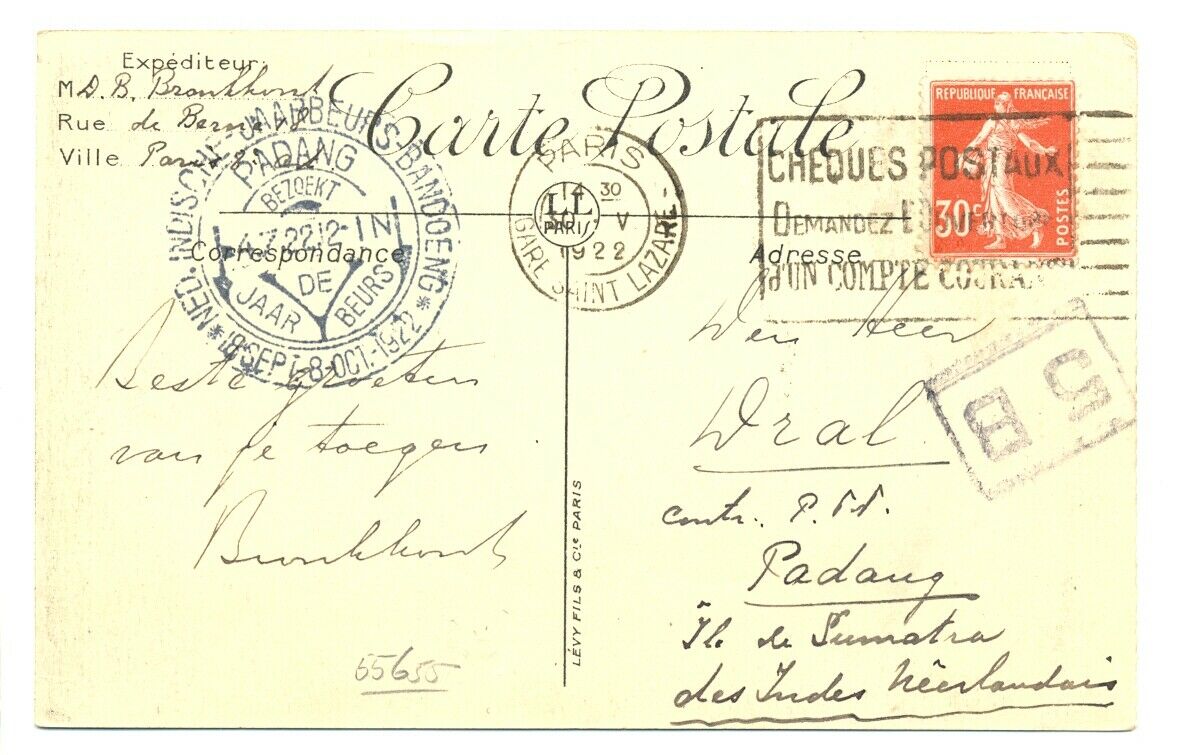 Carte Postale
Expéditeur:
M D. B. Bronkhorst
Rue de Berne
Ville Paris
Correspondance
Adresse
NED. INDISCHE JAARBEURS-BANDOENG
PADANG
BEZOEKT
22 12- IN
DE
JAAR BEURS
*18 SEPT-8-OCT-1922*
PARIS
14 30
V
1922
GARE SAINT LAZARE
LL
PARIS
CHEQUES POSTAUX
DEMANDEZ
d'UN COMPTE COURANT
REPUBLIQUE FRANÇAISE
30c
POSTES
Beste groeten
van je toegen
Bronkhorst
Den Heer
Dral
contr. P.T.T.
Padang
Île de Sumatra
des Indes Néerlandais
S
B
LÉVY FILS & Cie PARIS
55655